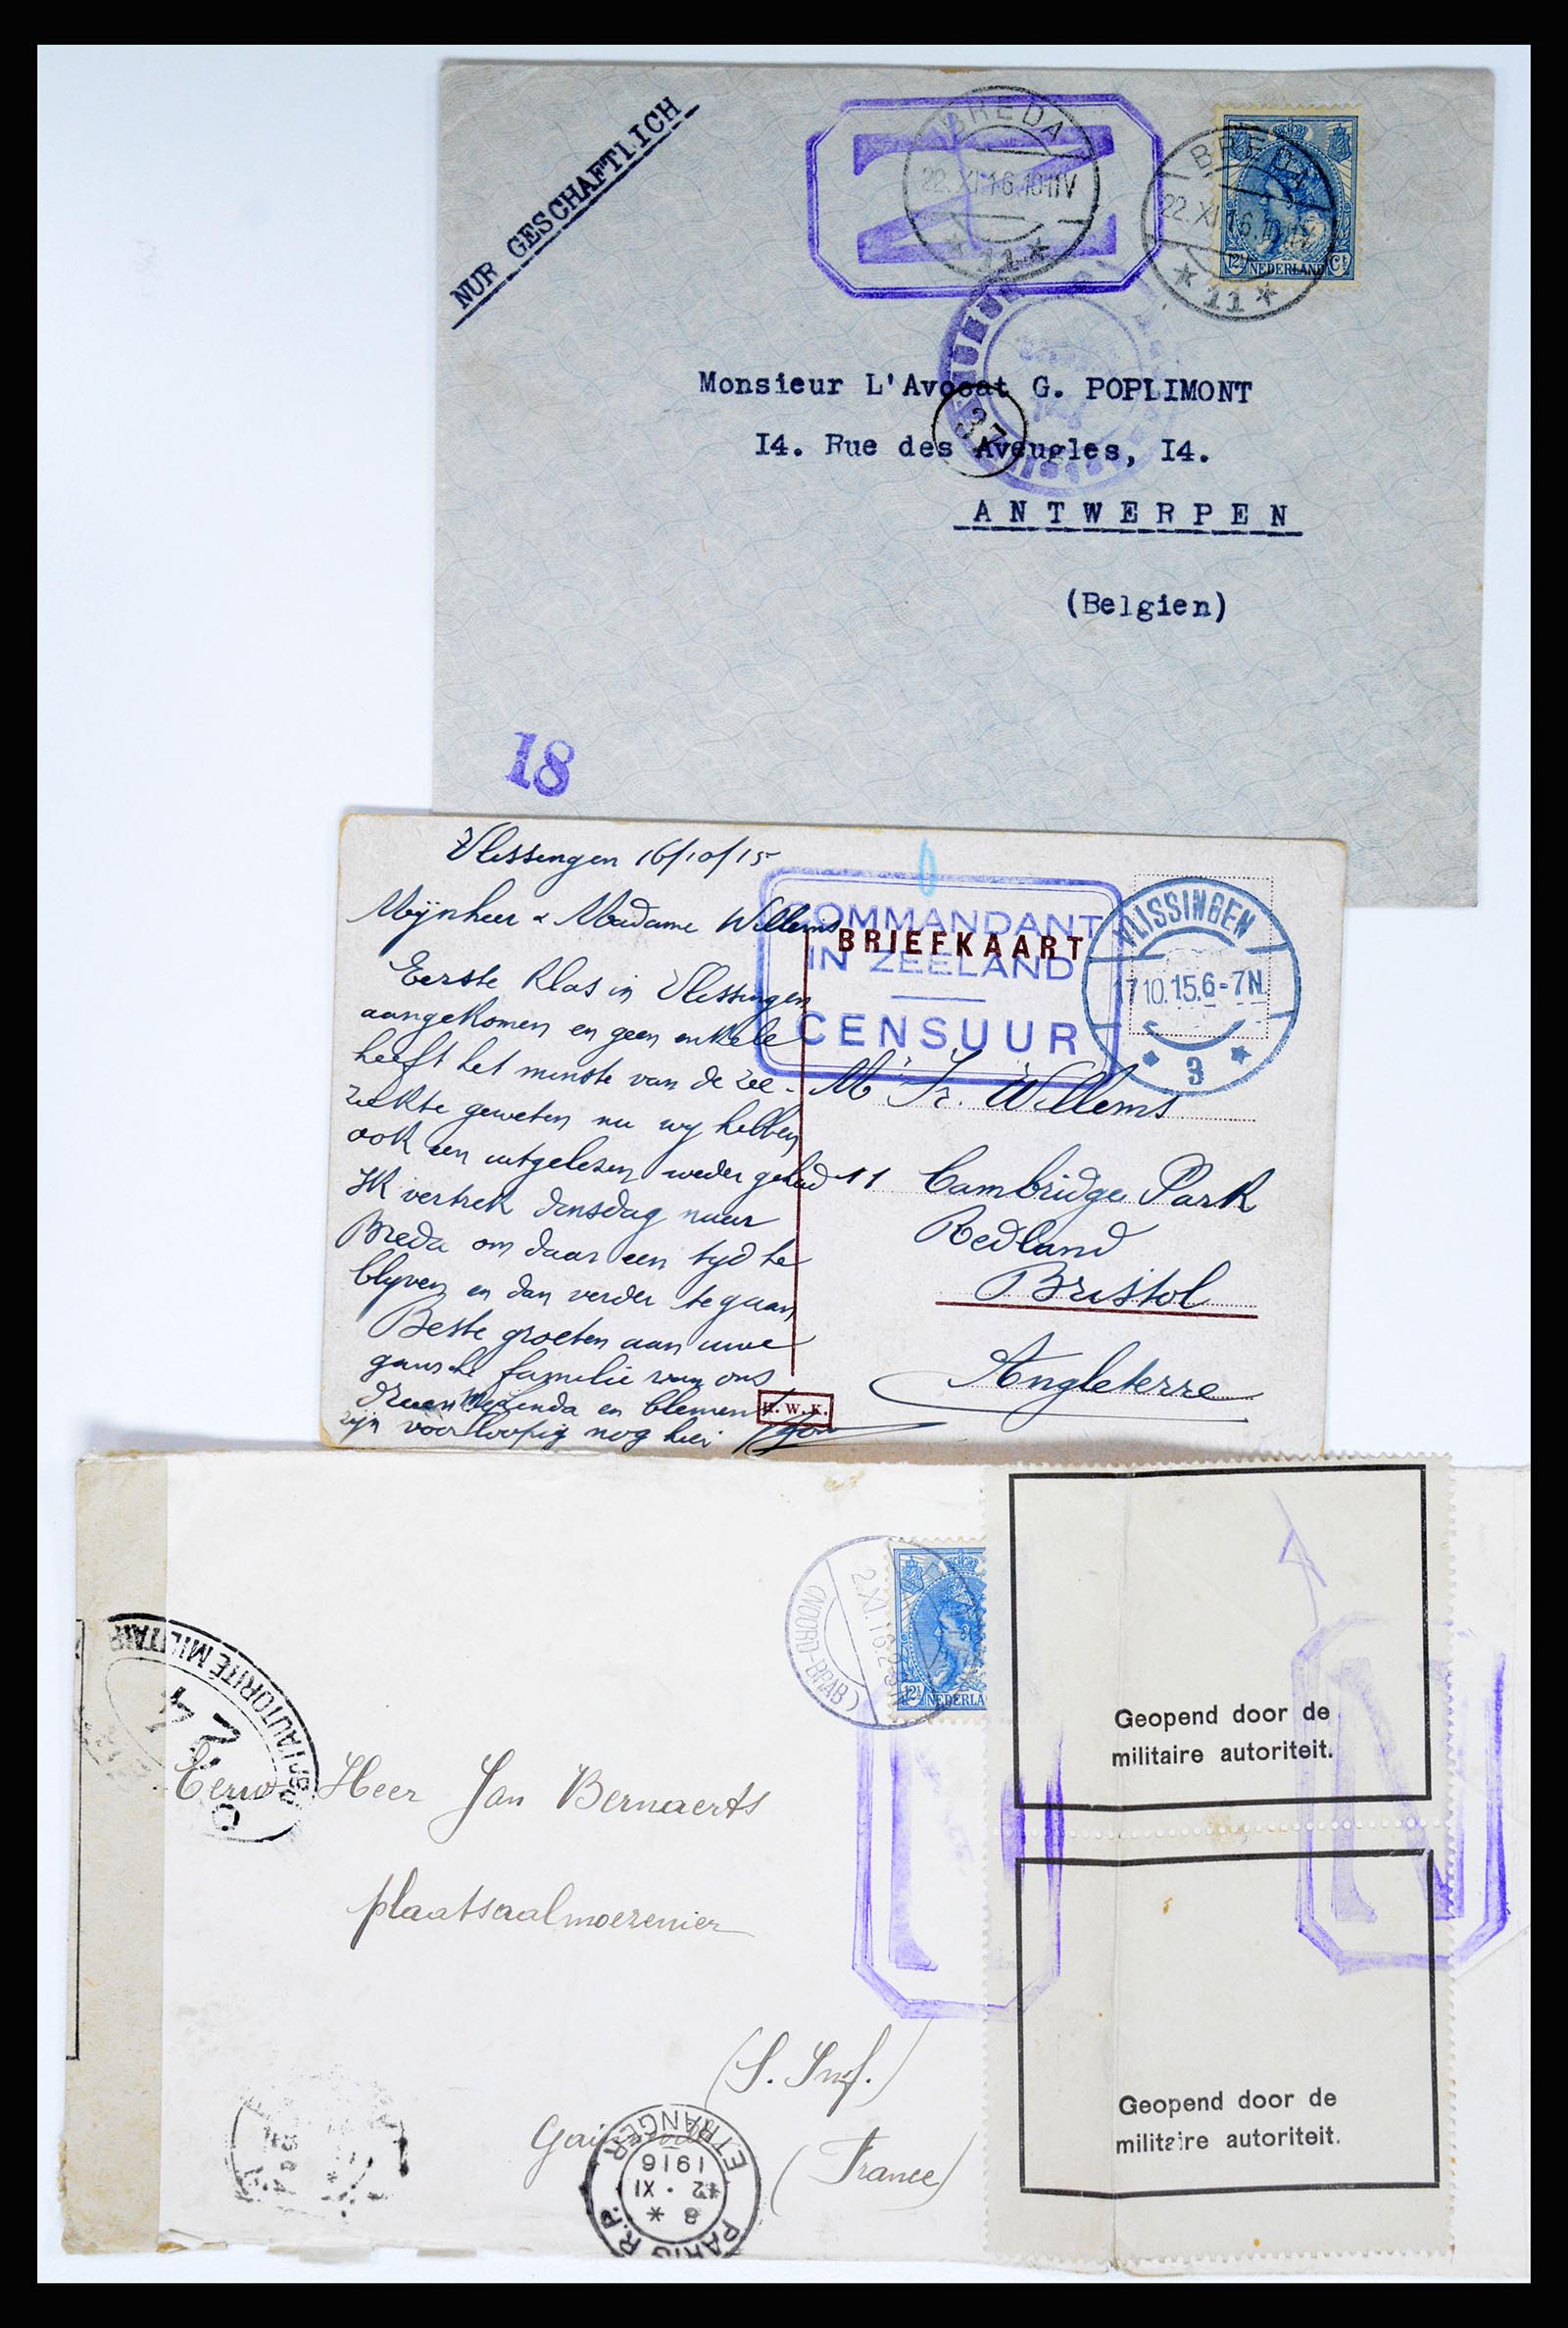 NUR GESCHAFTLICH
BREDA
22.XI.16.10-11V
11
BREDA
22.XI.16.10-11V
11
12½ NEDERLAND Ct
37
Monsieur L'Avocat G. POPLIMONT
I4. Rue des Aveugles, I4.
ANTWERPEN
(Belgien)
18
Vlissingen 16/10/15
Mynheer & Madame Willems
Eerste Klas in Vlissingen
aangekomen en geen enkele
heeft het minste van de zee-
ziekte geweten nu wy hebben
ook een uitgelezen weder gehad
Ik vertrek dinsdag naar
Breda om daar een tyd te
blyven en dan verder te gaan
Beste groeten aan uwe
gansche familie van ons
en blemen
zyn voorloopig nog hier
COMMANDANT
IN ZEELAND
CENSUUR
BRIEFKAART
VLISSINGEN
17.10.15.6-7N.
3
Mr Fr. Willems
11 Cambridge Park
Redland
Bristol
Angleterre
H.W.K.
2.XI.16.2-3N
(NOORD-BRAB)
12½ NEDERLA
L'AUTORITÉ MILITAIR
Eerw Heer Jan Bernaerts
plaatsaalmoezenier
(S. Inf.)
(France)
PARIS R.P.
ETRANGER
8
12 · XI
1916
Geopend door de
militaire autoriteit.
Geopend door de
militaire autoriteit.